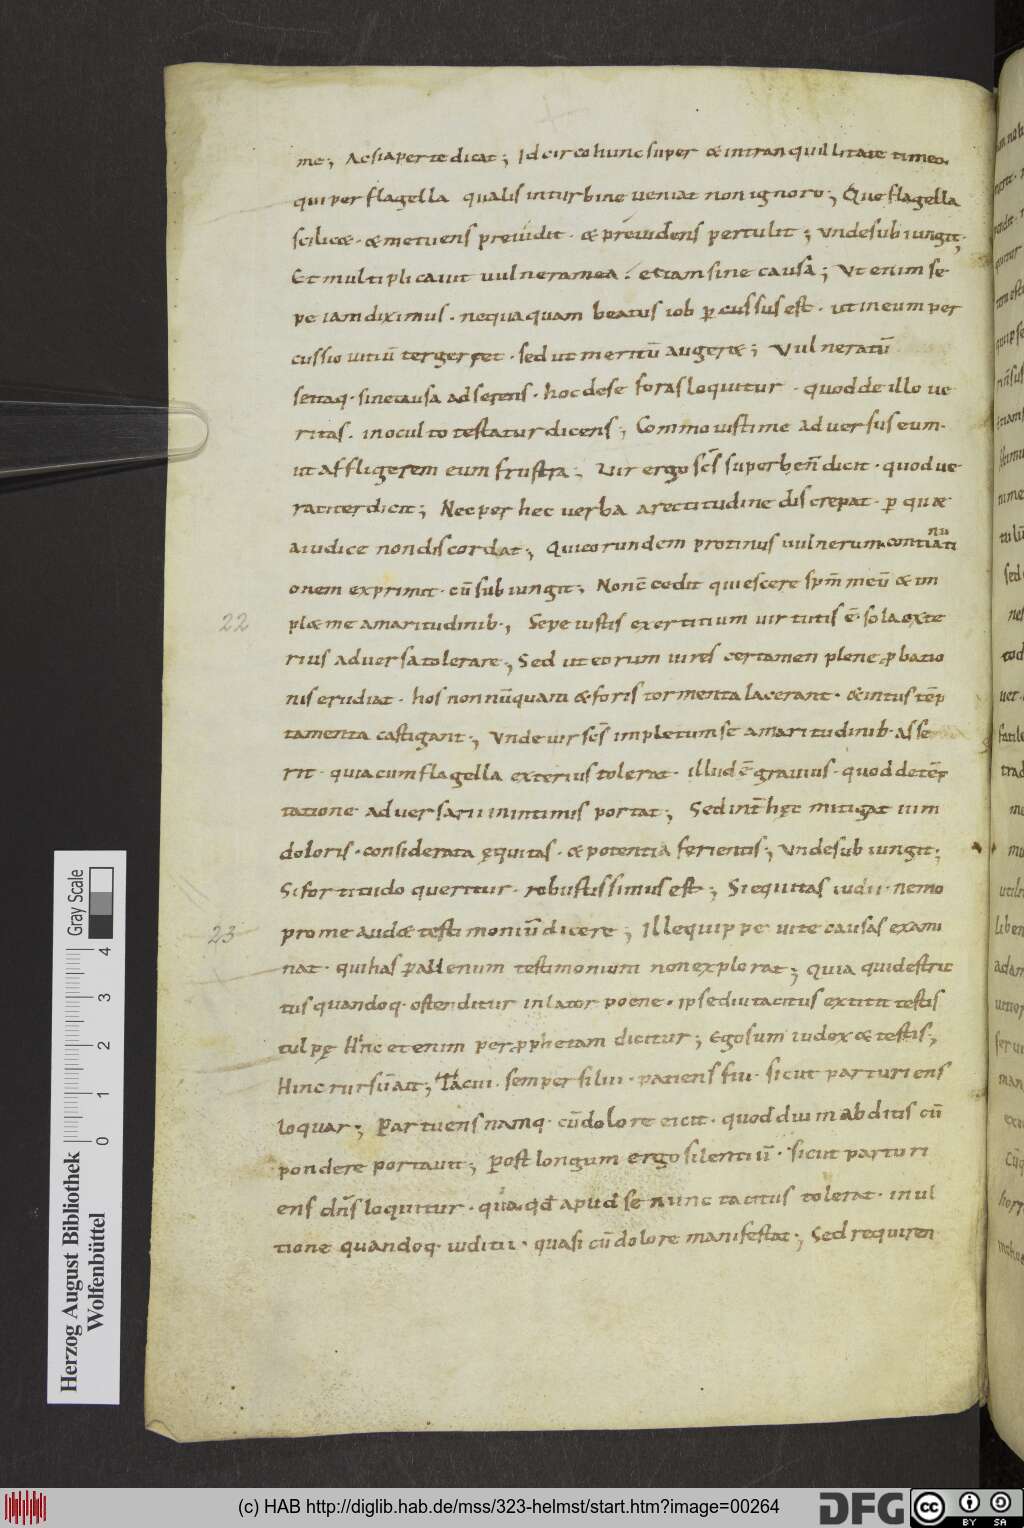 me; Ac si aperte dicat; Idcirco hunc super & in tranquillitate timeo.
qui per flagella qualis in turbine veniat non ignoro; Que flagella
scilic&. & metuens previdit. & previdens pertulit; Unde subiungit;
Et multiplicavit vulnera mea. etiam sine causa; Ut enim se
pe iam diximus. nequaquam beatus iob p̲cussus est. ut in eum per
cussio vitiū tergeret. sed ut meritū auger&; Vulneratū
se itaq. sine causa adserens. hoc de se foras loquitur. quod de illo ve
ritas. in oculto testatur dicens; Commovisti me adversus eum.
ut affligerem eum frustra; Vir ergo sc̄s superbe n̄ dicit. quod ve
raciter dicit; Nec per hec verba a rectitudine discrepat. p̲ qu&
a iudice non discordat; Qui eorundem protinus vulnerum contiati
nu
onem exprimit. cū subiungit; Non c̄cedit quiescere sp̄m meū & im
pl& me amaritudinib.; Sepe iustis exercitium virtutis ē. sola exte
rius adversa tolerare; Sed ut eorum vires certamen plene p̲batio
nis erudiat. hos nonnūquam & foris tormenta lacerant. & intus tēp
tamenta castigant; Unde vir sc̄s impletum se amaritudinib. asse
rit. quia cum flagella exterius tolerat. illud ē gravius. quod de tēp
tatione adversarii in intimis portat; Sed int̄ hęc mitigat vim
doloris. considerata ęquitas. & potentia ferientis; Unde subiungit;
Si fortitudo queritur. robustissimus est; Si equitas iudii. nemo
pro me aud& testimoniū dicere; Ille quippe vite causas exami
nat. qui has p̲ alienum testimonium non explorat; Quia qui destric
tus quandoq. ostenditur inlator poene. ipse diu tacitus extitit testis
culpę Hinc etenim per p̲phetam dicitur; Ego sum iudex & testis;
Hinc rursū ait; Tacui. semper silui. patiens fui. sicut parturiens
loquar; Parturens namq. cū dolore eicit. quod diu in abditis cū
pondere portavit; Post longum ergo silentiū. sicut parturi
ens dn̄s loquitur. quia qđ apud se nunc tacitus tolerat. in ul
tione quandoq. iuditii. quasi cū dolore manifestat; Sed requiren
22
23
Herzog August Bibliothek
Wolfenbüttel
Gray Scale
0 1 2 3 4
(c) HAB http://diglib.hab.de/mss/323-helmst/start.htm?image=00264
DFG
cc
BY SA